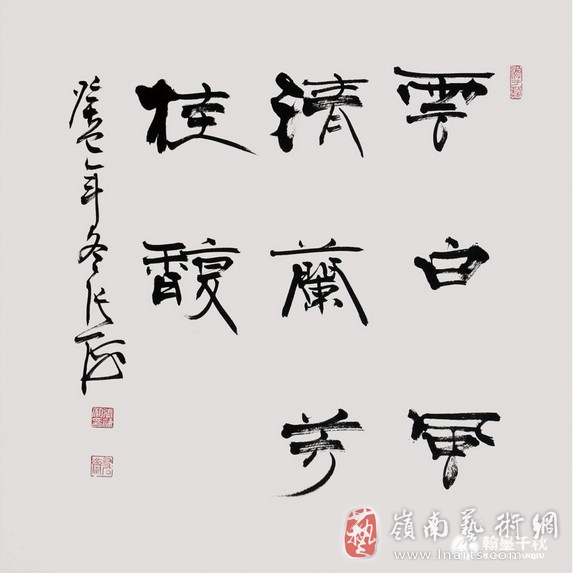 雲白風
清蘭芳
桂馥
癸巳年冬張
嶺南藝術網
www.lnarts.com
翰墨千秋